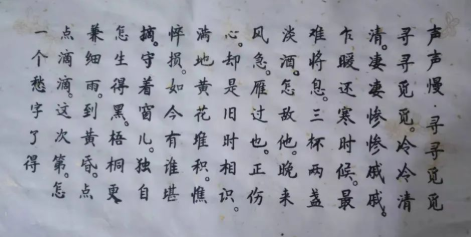 声声慢·寻寻觅觅
寻寻觅。冷冷清
清。凄凄惨惨戚戚。
乍暖还寒时候。最
难将息。三杯两盏
淡酒。怎敌他。晚来
风急。雁过也。正伤
心。却是旧时相识。
满地黄花堆积。憔
悴损。如今有谁堪
摘。守着窗儿。独自
怎生得黑。梧桐更
兼细雨。到黄昏。点
点滴滴。这次第。怎
一个愁字了得